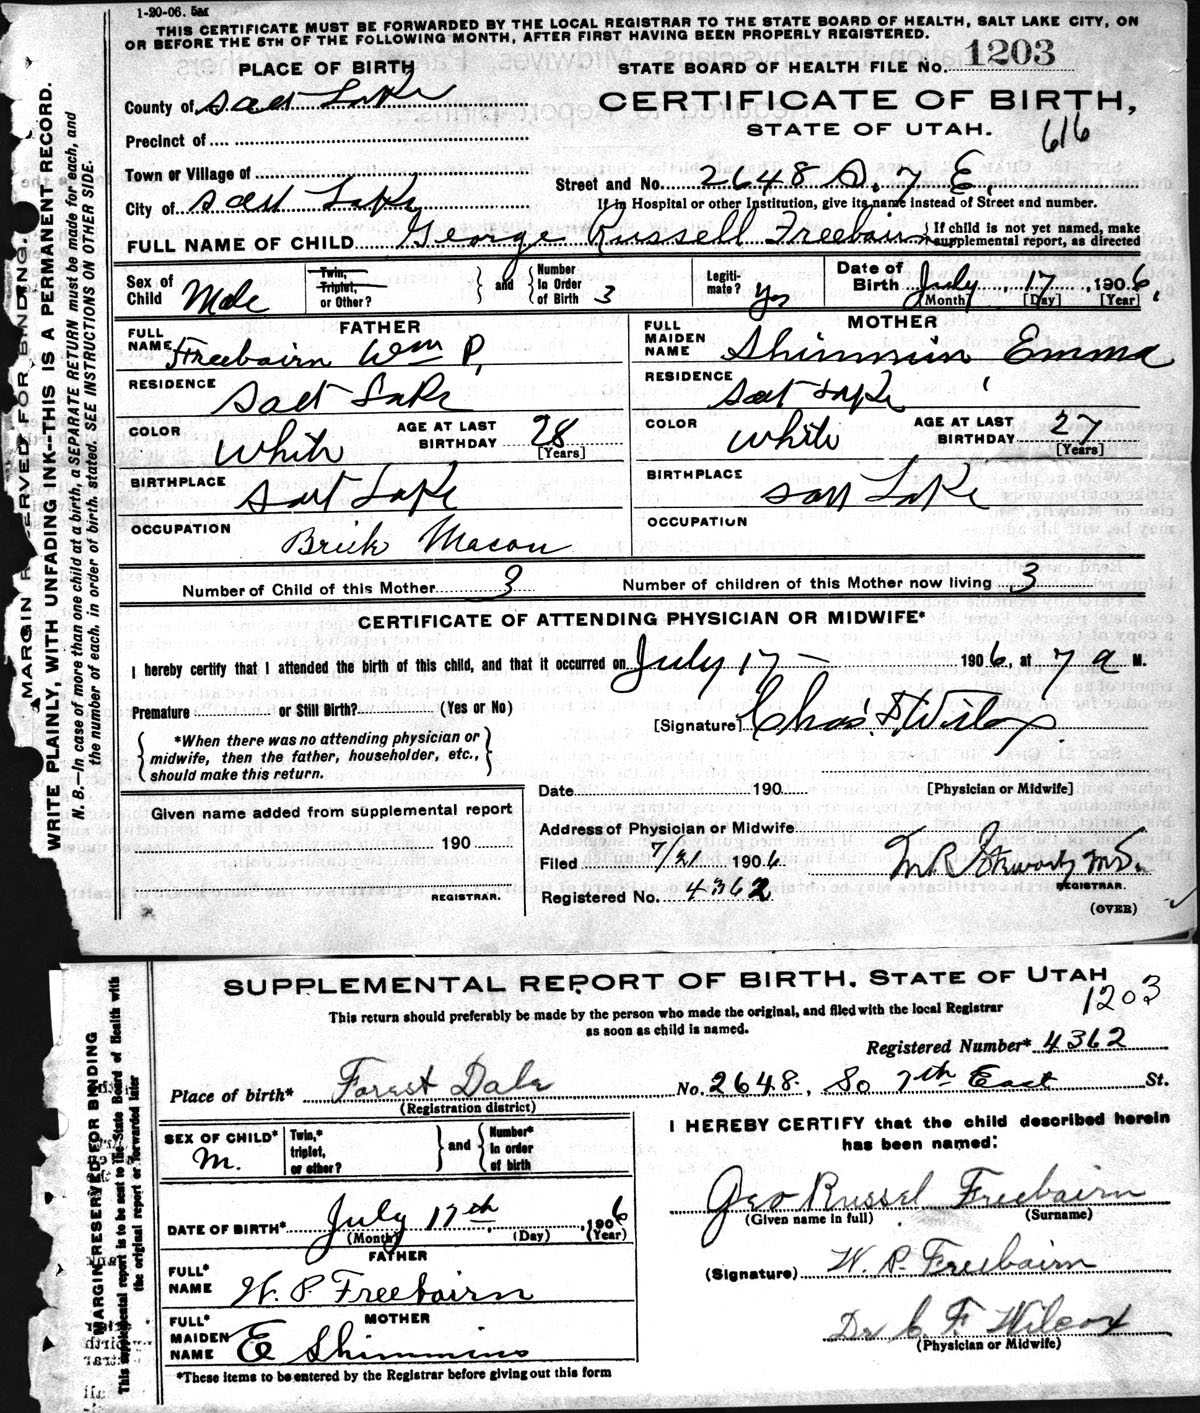 1-20-06. 5M
THIS CERTIFICATE MUST BE FORWARDED BY THE LOCAL REGISTRAR TO THE STATE BOARD OF HEALTH, SALT LAKE CITY, ON
OR BEFORE THE 5TH OF THE FOLLOWING MONTH, AFTER FIRST HAVING BEEN PROPERLY REGISTERED.
PLACE OF BIRTH
STATE BOARD OF HEALTH FILE No. 1203
County of Salt Lake
CERTIFICATE OF BIRTH,
STATE OF UTAH.
616
Precinct of
Town or Village of
Street and No. 2648 S. 7 E.
City of Salt Lake
If in Hospital or other Institution, give its name instead of Street and number.
FULL NAME OF CHILD George Russell Freebairn
{ If child is not yet named, make supplemental report, as directed
Sex of Child Male
Twin, Triplet, or Other?
and
Number in Order of Birth 3
Legitimate? Yes
Date of Birth July 17, 1906,
(Month) [Day] [Year]
FATHER
FULL NAME Freebairn Wm P.
RESIDENCE Salt Lake
COLOR White
AGE AT LAST BIRTHDAY 28
[Years]
BIRTHPLACE Salt Lake
OCCUPATION Brick Mason
MOTHER
FULL MAIDEN NAME Shimmin Emma
RESIDENCE Salt Lake
COLOR White
AGE AT LAST BIRTHDAY 27
[Years]
BIRTHPLACE Salt Lake
OCCUPATION
Number of Child of this Mother 3
Number of children of this Mother now living 3
CERTIFICATE OF ATTENDING PHYSICIAN OR MIDWIFE*
I hereby certify that I attended the birth of this child, and that it occurred on July 17 – 1906, at 7 a M.
Premature or Still Birth? (Yes or No)
[Signature] Chas. F Wilcox
*When there was no attending physician or
midwife, then the father, householder, etc.,
should make this return.
Date 190
[Physician or Midwife]
Given name added from supplemental report
190
REGISTRAR.
Address of Physician or Midwife
Filed 7/21 1906
M.R. Stewart M.D.
REGISTRAR.
Registered No. 4362
(OVER)
MARGIN RESERVED FOR BINDING.
WRITE PLAINLY, WITH UNFADING INK--THIS IS A PERMANENT RECORD.
N. B.—In case of more than one child at a birth, a SEPARATE RETURN must be made for each, and
the number of each, in order of birth, stated. SEE INSTRUCTIONS ON OTHER SIDE.
SUPPLEMENTAL REPORT OF BIRTH, STATE OF UTAH
1203
This return should preferably be made by the person who made the original, and filed with the local Registrar
as soon as child is named.
Registered Number* 4362
Place of birth* Forest Dale
(Registration district)
No. 2648, So 7th East St.
SEX OF CHILD* M.
Twin,* triplet, or other?
and
Number* in order of birth
DATE OF BIRTH* July 17th, 1906
(Month) (Day) (Year)
FATHER
FULL* NAME W. P. Freebairn
MOTHER
FULL* MAIDEN NAME E Shimmins
*These items to be entered by the Registrar before giving out this form
I HEREBY CERTIFY that the child described herein
has been named:
Geo Russel Freebairn
(Given name in full) (Surname)
(Signature) W. P. Freebairn
Dr C. F. Wilcox
(Physician or Midwife)
MARGIN RESERVED FOR BINDING
This supplemental report is to be sent to the State Board of Health with
the original report or forwarded later